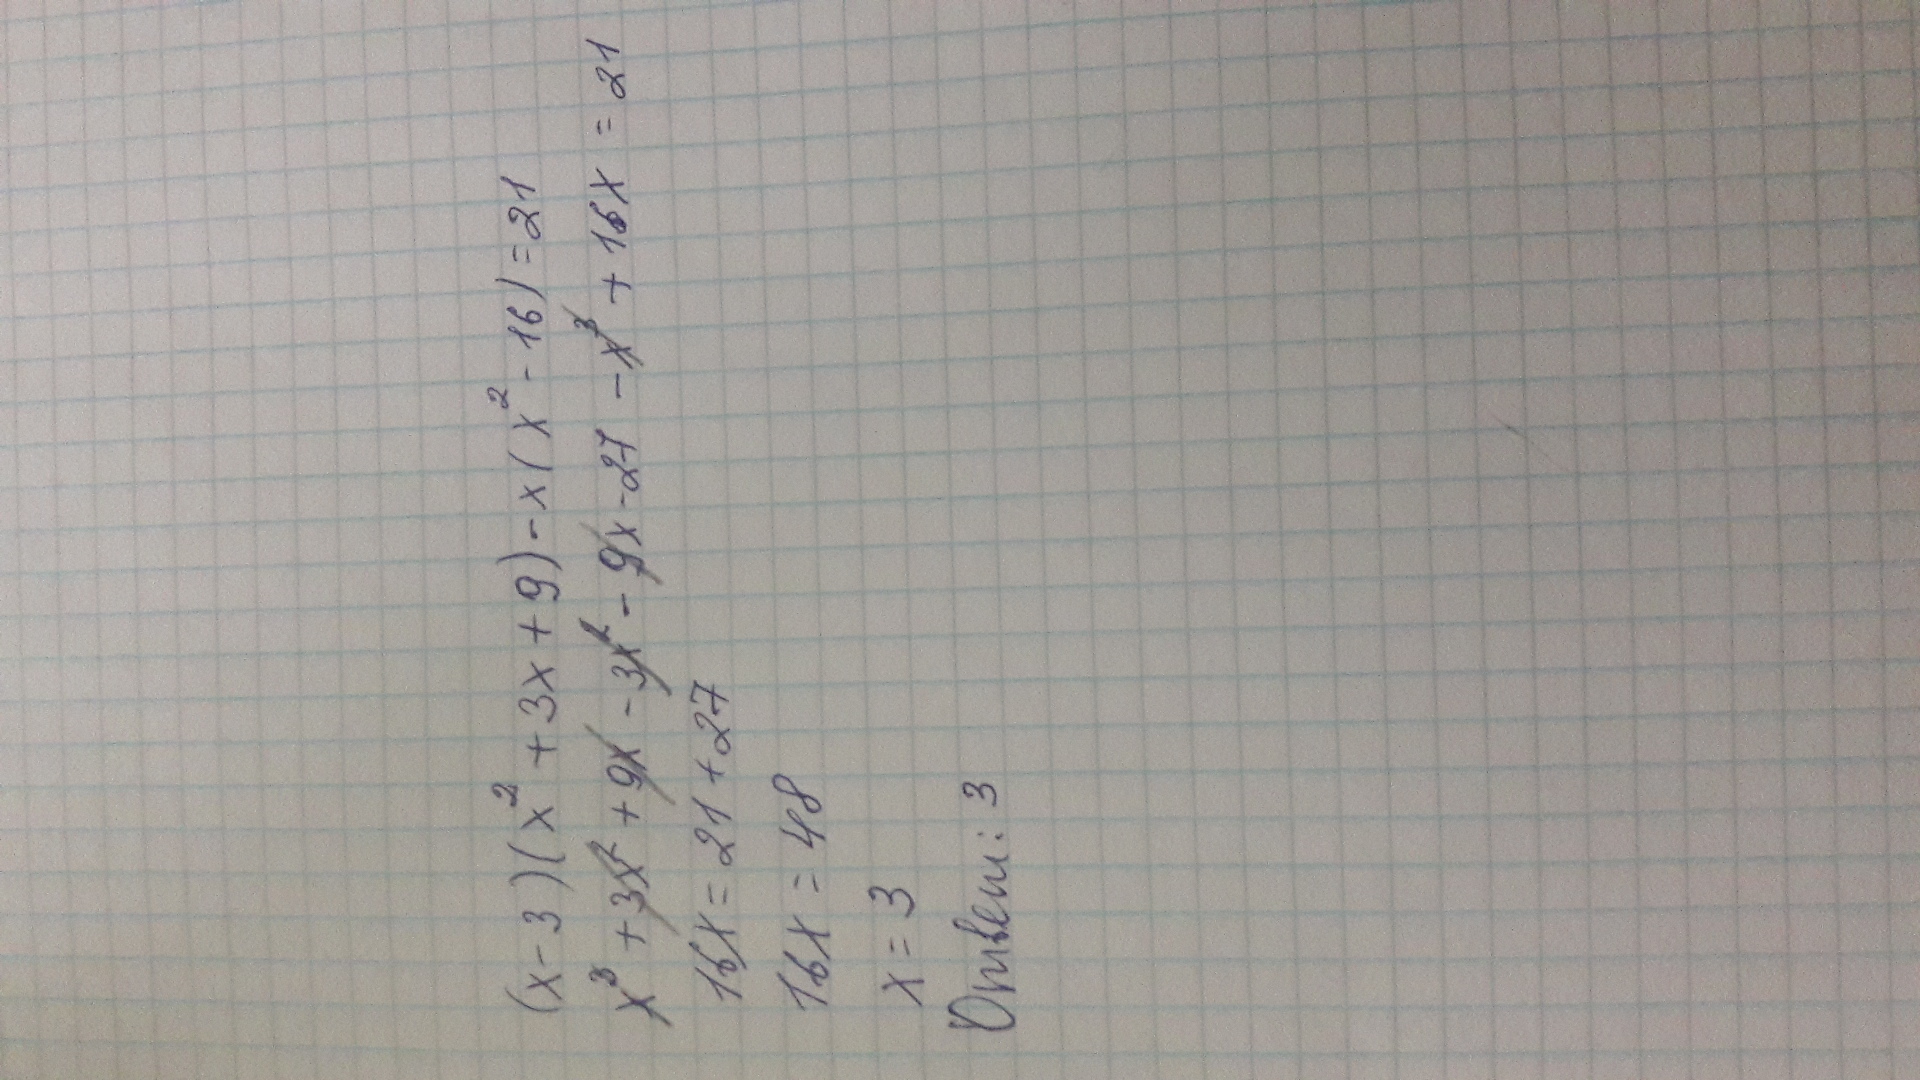 (x-3)(x² + 3x + 9) - x(x² - 16) = 21
x³ + 3x² + 9x - 3x² - 9x - 27 - x³ + 16x = 21
16x = 21 + 27
16x = 48
x = 3
Ответ: 3